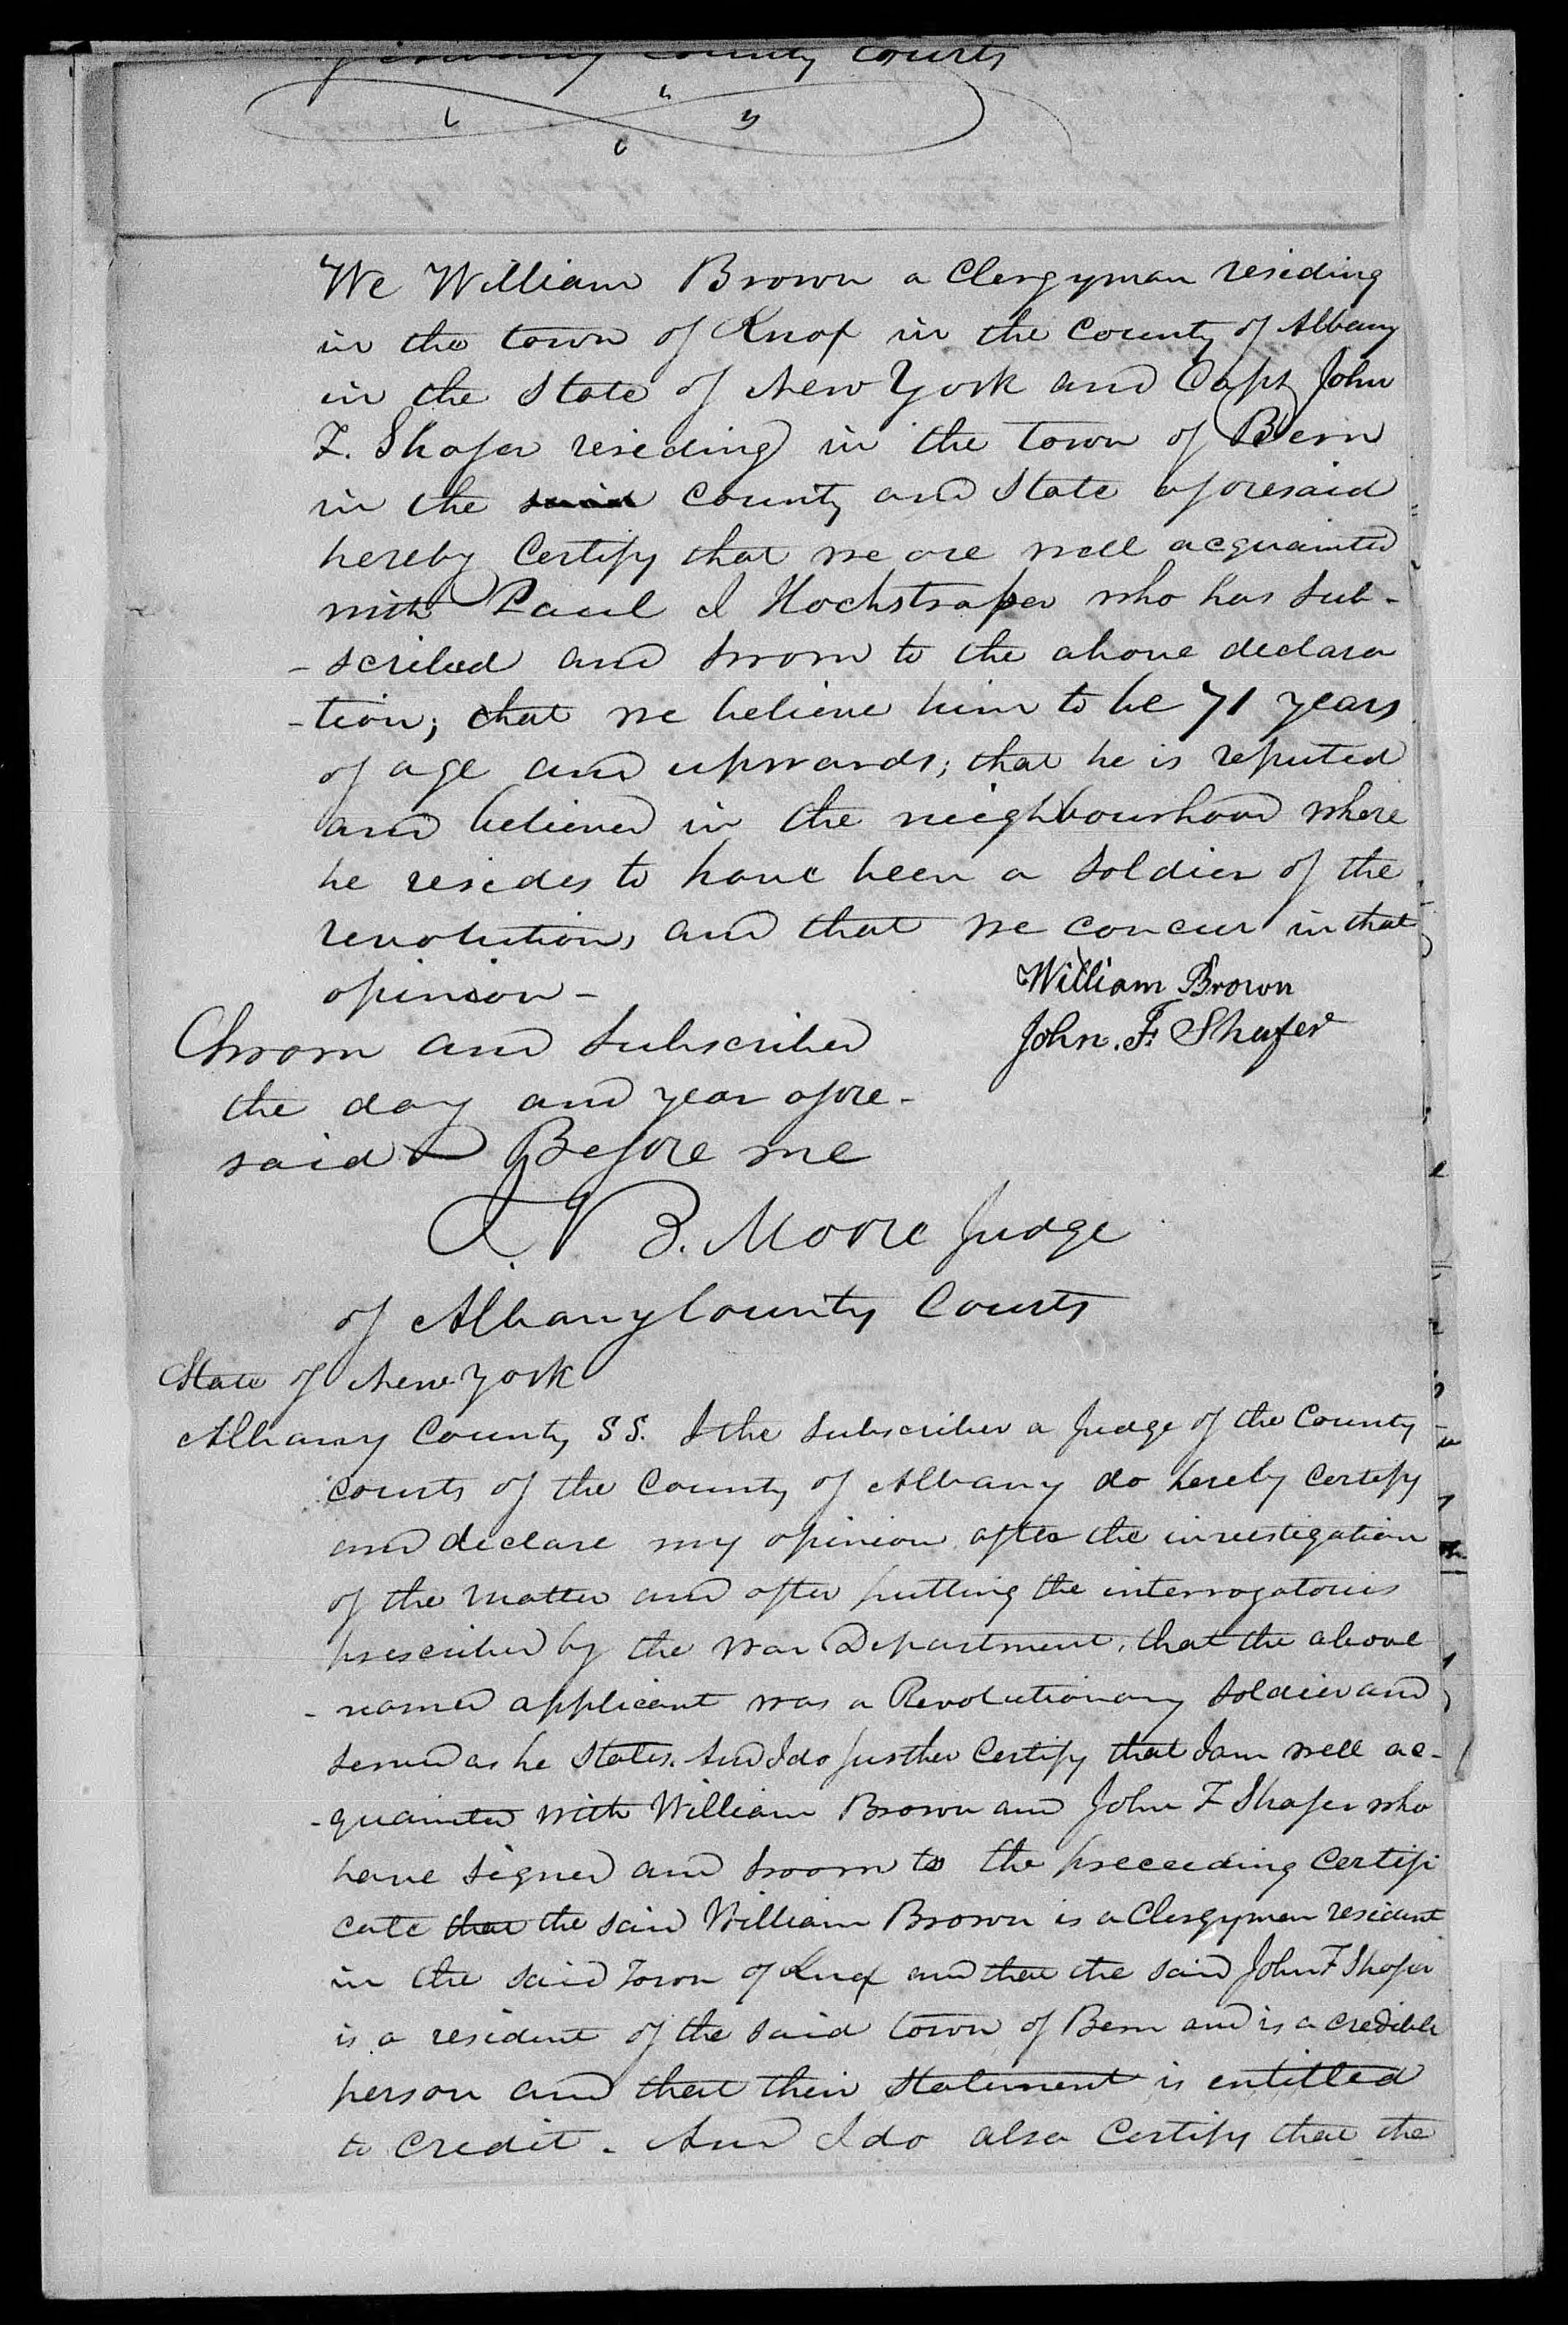 County Courts
We William Brown a Clergyman residing
in the town of Knox in the County of Albany
in the State of New York and Capt John
F. Shafer residing in the town of Bern
in the said County and State aforesaid
hereby Certify that we are well acquainted
with Paul I Hochstrasser who has sub-
-scribed and sworn to the above declara
-tion; that we believe him to be 71 years
of age and upwards; that he is reputed
and believed in the neighbourhood where
he resides to have been a soldier of the
revolution, and that we concur in that
opinion-
William Brown
John. F. Shafer
Sworn and subscribed
the day and year afore-
said Before me
V B. Moore Judge
of Albany County Courts
State of New York
Albany County SS. I the subscriber a Judge of the County
courts of the County of Albany do hereby Certify
and declare my opinion after the investigation
of the matter and after putting the interrogatories
prescribed by the War Department, that the above
-named applicant was a Revolutionary soldier and
served as he states. And I do further Certify that I am well ac-
-quainted with William Brown and John F Shafer who
have signed and sworn to the preceeding Certifi
cate that the said William Brown is a Clergyman resident
in the said Town of Knox and that the said John F Shafer
is a resident of the said town of Bern and is a credible
person and that their statement is entitled
to credit. And I do also Certify that the